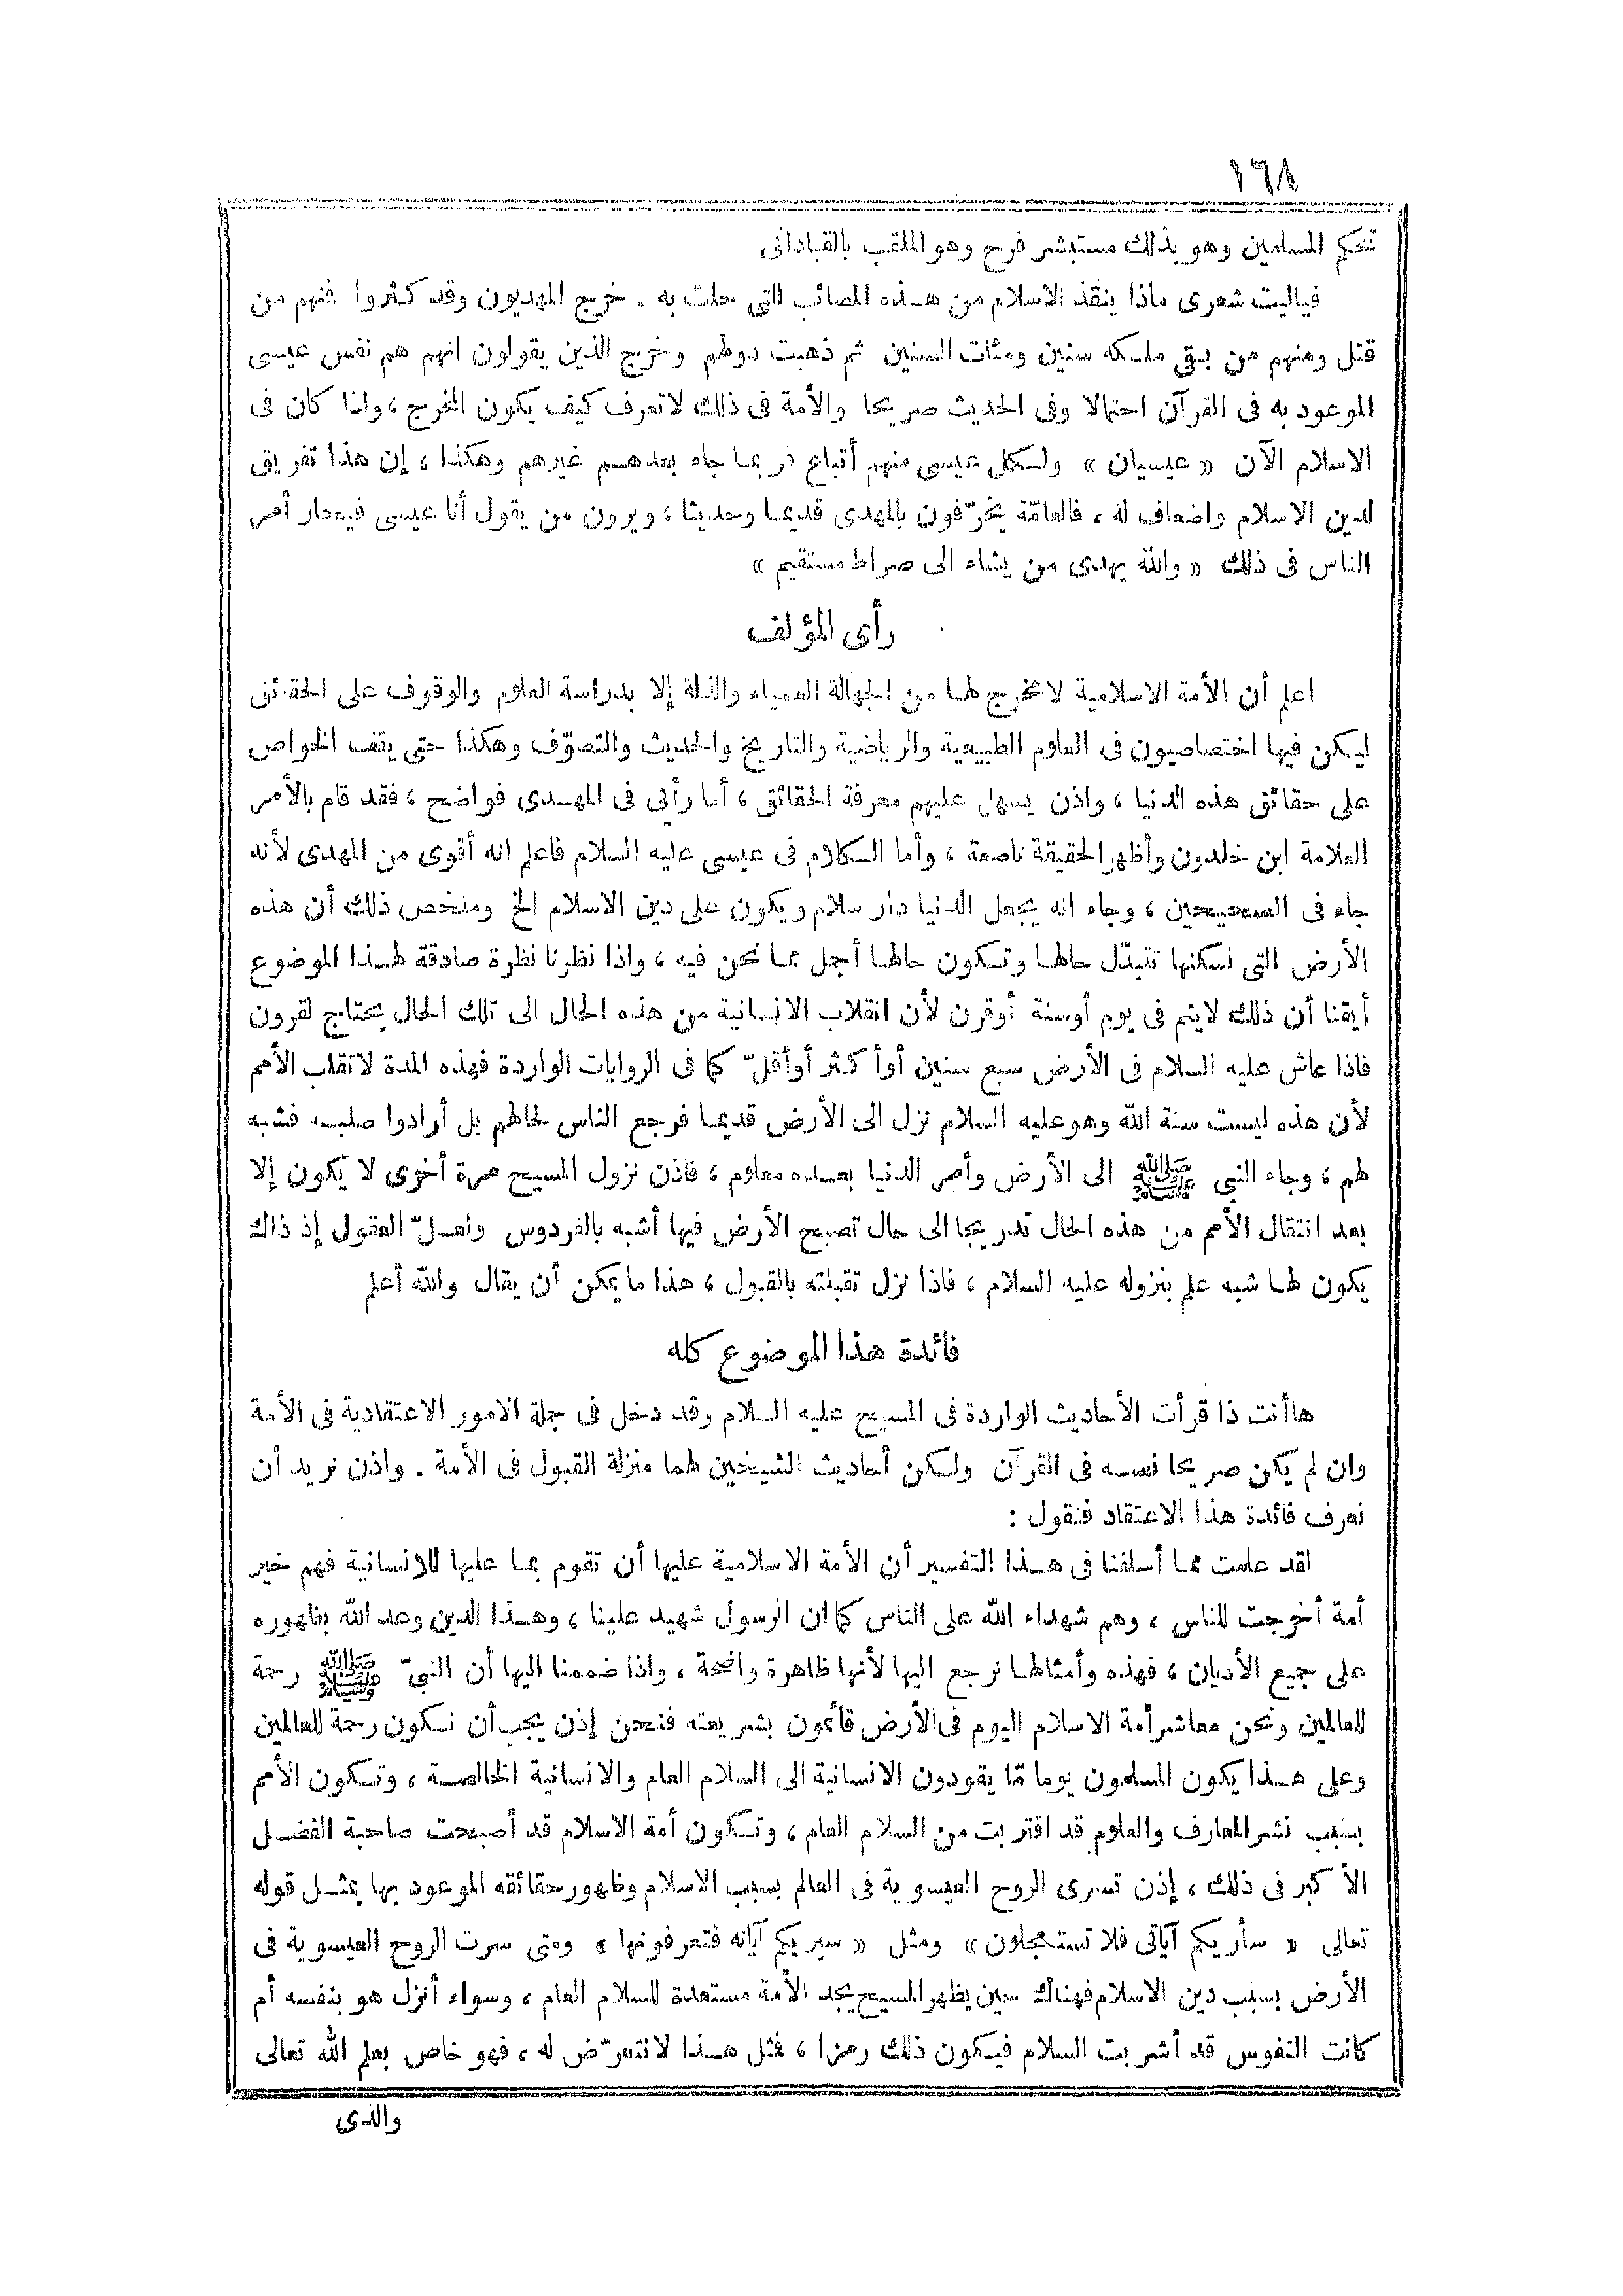 ١٦٨
تحكم المسلمين وهو بذلك مستبشر فرح وهو الملقب بالقيادانى
فياليت شعرى ماذا ينقذ الاسلام من هذه المصائب التى حلت به . خرج المهديون وقد كثروا فنهم من
قتل ومنهم من بقى ملكه سنين ومئات السنين ثم ذهبت دولهم وخرج الذين يقولون انهم هم نفس عيسى
الموعود به فى القرآن احتمالا وفى الحديث صريحا والأمة فى ذلك لاتعرف كيف يكون المخرج ، واذا كان فى
الاسلام الآن « عيسيان » ولكل عيسى منهم أتباع فربما جاء بعدهم غيرهم وهكذا ، إن هذا تفريق
لدين الاسلام واضعاف له ، فالعامّة يخرّفون بالمهدى قديما وحديثا ، ويرون من يقول أنا عيسى فيحار أمر
الناس فى ذلك « والله يهدى من يشاء الى صراط مستقيم »
رأى المؤلف
اعلم أن الأمة الاسلامية لامخرج لها من الجهالة العمياء والذلة إلا بدراسة العلوم والوقوف على الحقائق
ليكن فيها اختصاصيون فى العلوم الطبيعية والرياضية والتاريخ والحديث والتصوّف وهكذا حتى يقف الخواص
على حقائق هذه الدنيا ، واذن يسهل عليهم معرفة الحقائق ، أما رأيى فى المهدى فواضح ، فقد قام بالأمر
العلامة ابن خلدون وأظهر الحقيقة ناصعة ، وأما الكلام فى عيسى عليه السلام فاعلم انه أقوى من المهدى لأنه
جاء فى الصحيحين ، وجاء انه يجعل الدنيا دار سلام ويكون على دين الاسلام الخ وملخص ذلك أن هذه
الأرض التى نسكنها تتبدّل حالها وتكون حالها أجمل مما نحن فيه ، واذا نظرنا نظرة صادقة لهذا الموضوع
أيقنا أن ذلك لايتم فى يوم أوسنة أوقرن لأن انقلاب الانسانية من هذه الحال الى تلك الحال يحتاج لقرون
فاذا عاش عليه السلام فى الأرض سبع سنين أوأكثر أوأقلّ كما فى الروايات الواردة فهذه المدة لاتقلب الأمم
لأن هذه ليست سنة الله وهو عليه السلام نزل الى الأرض قديما فرجع الناس لحالهم بل أرادوا صلبه فشبه
لهم ، وجاء النبى ﷺ الى الأرض وأمر الدنيا بعده معلوم ، فاذن نزول المسيح مرة أخرى لا يكون إلا
بعد انتقال الأمم من هذه الحال تدريجا الى حال تصبح الأرض فيها أشبه بالفردوس ولعلّ العقول إذ ذاك
يكون لها شبه علم بنزوله عليه السلام ، فاذا نزل تقبلته بالقبول ، هذا مايمكن أن يقال والله أعلم
فائدة هذا الموضوع كله
هاأنت ذا قرأت الأحاديث الواردة فى المسيح عليه السلام وقد دخل فى جملة الامور الاعتقادية فى الأمة
وان لم يكن صريحا نصه فى القرآن ولكن أحاديث الشيخين لهما منزلة القبول فى الأمة . واذن نريد أن
نعرف فائدة هذا الاعتقاد فنقول :
لقد علمت مما أسلفنا فى هذا التفسير أن الأمة الاسلامية عليها أن تقوم بما عليها للانسانية فهم خير
أمة أخرجت للناس ، وهم شهداء الله على الناس كما ان الرسول شهيد علينا ، وهذا الدين وعد الله بظهوره
على جميع الأديان ، فهذه وأمثالها نرجع اليها لأنها ظاهرة واضحة ، واذا ضممنا اليها أن النبىّ ﷺ رحمة
للعالمين ونحن معاشر أمة الاسلام اليوم فى الأرض قائمون بشريعته فنحن إذن يجب أن نكون رحمة للعالمين
وعلى هذا يكون المسلمون يوما مّا يقودون الانسانية الى السلام العام والانسانية الخالصة ، وتكون الأمم
بسبب نشر المعارف والعلوم قد اقتربت من السلام العام ، وتكون أمة الاسلام قد أصبحت صاحبة الفضل
الأكبر فى ذلك ، إذن تسرى الروح العيسوية فى العالم بسبب الاسلام وظهور حقائقه الموعود بها بمثل قوله
تعالى « سأريكم آياتى فلا تستعجلون » ومثل « سيريكم آياته فتعرفونها » ومتى سرت الروح العيسوية فى
الأرض بسبب دين الاسلام فهناك حين يظهر المسيح يجد الأمة مستعدة للسلام العام ، وسواء أنزل هو بنفسه أم
كانت النفوس قد أشربت السلام فيكون ذلك رمزا ، فمثل هذا لانتعرّض له ، فهو خاص بعلم الله تعالى
والذى